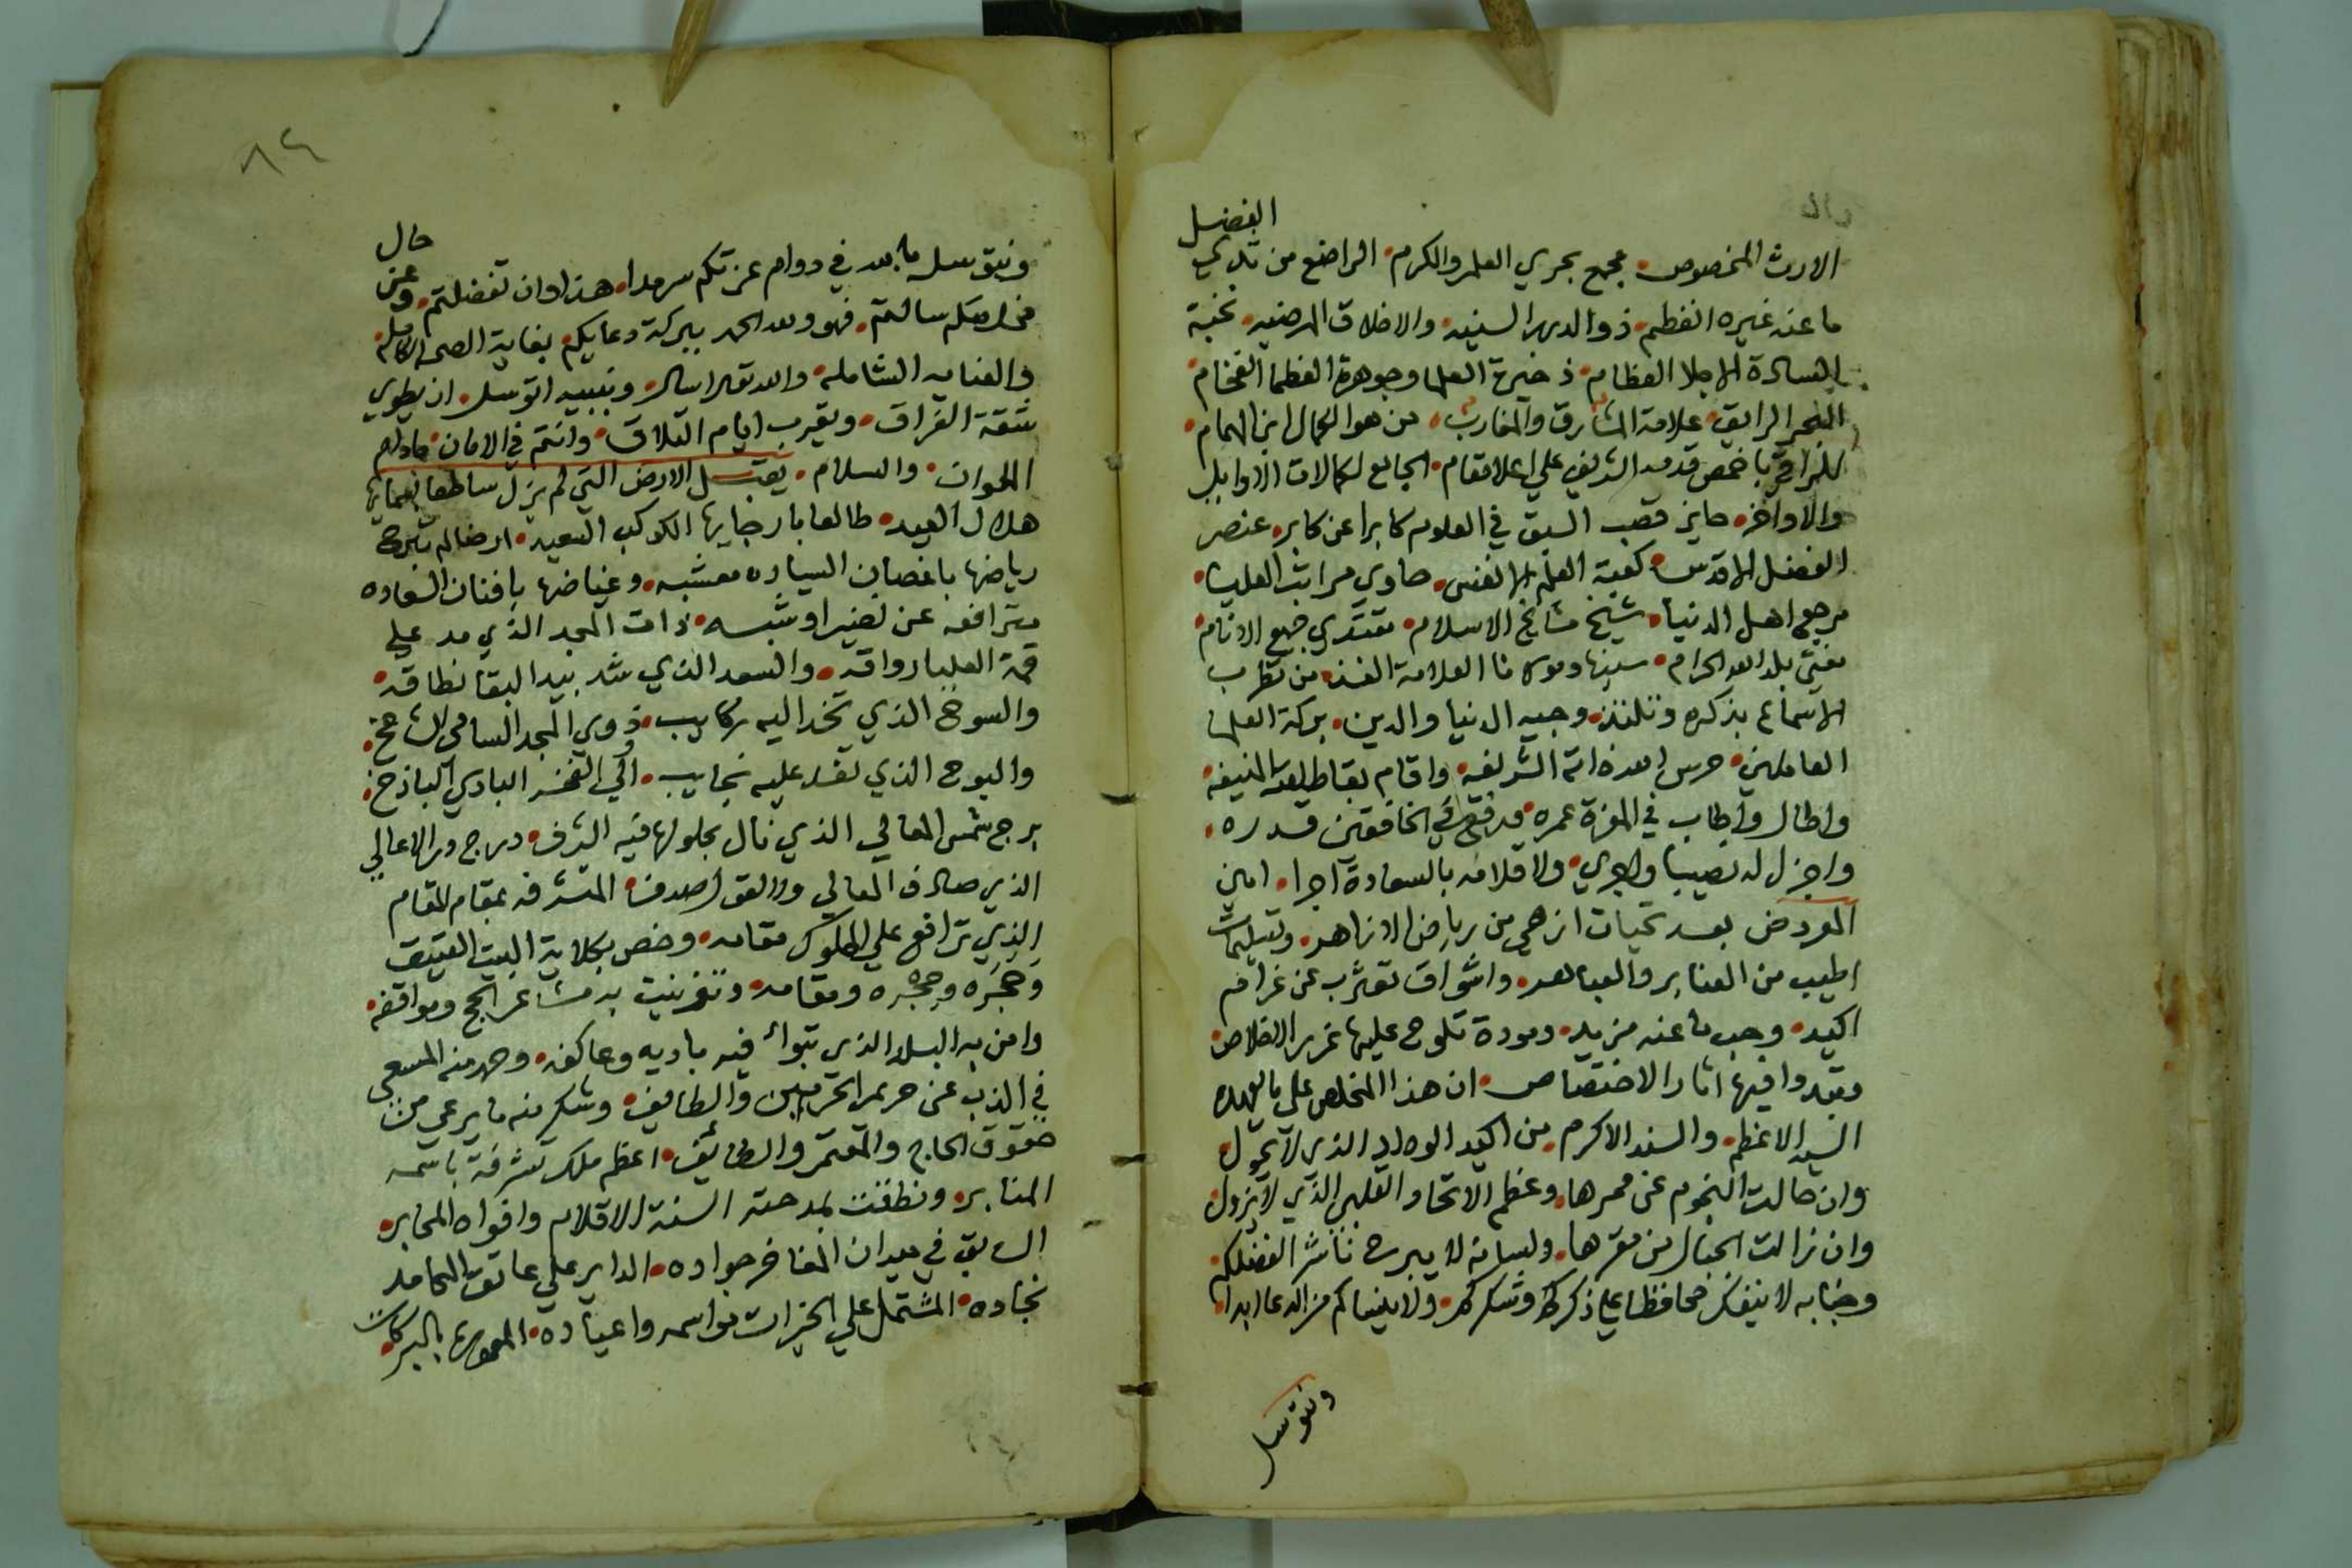 الفضل
الارث المخصوص مجمع بحري العلم والكرم الراضع من ثدي
ما عنه غيره انفطم ذو السنيه والاخلاق المرضيه نخبة
السادة الاجلا العظام ذخيرة العلما وجوهرة العظما الفخام
البحر الرايق علامة المشارق والمغارب من هو الكمال ابن الهمام
الراقي باخمص قدمه الشريف علي اعلا مقام الجامع لكمالات الاوايل
والاواخر حايز قصب السبق في العلوم كابرا عن كابر عنصر
الفضل الاقدس كعبة العلم الانفس حاوي مراتب العليا
مرجع اهل الدنيا شيخ مشايخ الاسلام مقتدي جميع الانام
مفتي بلد الله الحرام سيدنا ومولانا العلامة من تطرب
الاسماع بذكره وتلتذ وجيه الدنيا والدين بركة العلما
العاملين حرس الله ذاته الشريفه واقام بقا طلعته المنيفه
واطال واطاب في العزة عمره ورفع في الخافقين قدره
واجزل له نصيبا واجري ولاقلامه بالسعادة اجرا امين
المعروض بعد تحيات ازهي من رياض الازاهر وتسليمات
اطيب من العنابر والعباهر واشواق تعرب عن غرام
اكيد وحب ما عنه مزيد ومودة تلوح عليها غرر الاخلاص
وتبدوا فيها اثار الاختصاص ان هذا المخلص علي ما يعهده
السيد الاعظم والسند الاكرم من اكيد الوداد الذي لا يحول
وان حالت النجوم عن ممرها وعظم الاتحاد القلبي الذي لا يزول
وان زالت الجبال من مقرها ولسانه لا يبرح ناشر الفضلكم
وجنابه لا ينفك محافظا علي ذكركم وشكركم ولا ينساكم من الدعا ابدا
ونتوسل
٨٤
حال
ونتوسل بالله في دوام عزتكم سرمدا هذا وان تفضلتم وعن
مخلصكم سالتم فهو ولله الحمد ببركة دعايكم بغاية الصحه الكامله
والعنايه الشامله والله تعالي اسال وبنبيه اتوسل ان يطوي
شقة الفراق ويقرب ايام التلاق وانتم في الامان مادام
الملوان والسلام يقبل الارض التي لم يزل ساطعا بسمايها
هلال العيد طالعا بارجايها الكوكب السعيد ارضا لم تبرح
رياضها باغصان السياده معشبه وغياضها بافنان السعاده
مترافعه عن نضير او شبه ذات المجد الذي مد علي
قمة العليا رواقه والسعد الذي شد بيد البقا نطاقه
والسوح الذي تخد اليه ركايب ذوي المجد السامي الشامخ
والبوح الذي تفد عليه نجايب اولي الفخر البادي الباذخ
برج شمس المعالي الذي نال بحلولها فيه الشرف ودرج در الاعالي
الذي صادف المعالي ووافق الصدف المتشرفه بمقام المقام
الذي ترافع علي الملوك مقامه وخص بكلاية البيت العتيق
وحجره وحجره ومقامه وتزينت به مشاعر الحج ومواقفه
وامن به البلد الذي تبوأ فيه باديه وعاكفه وحمد منه المسعي
في الذب عن حريم الحرمين والطايف وشكر منه ما يرعي من
حقوق الحاج والمعتمر والطائف اعظم ملك تشرفت باسمه
المنابر ونطقت بمدحته السنة الاقلام وافواه المحابر
السابق في ميدان المفاخر جواده الداير علي عاتق المحامد
نجاده المشتمل علي الخيرات مواسمه واعياده المعموره بالبركات